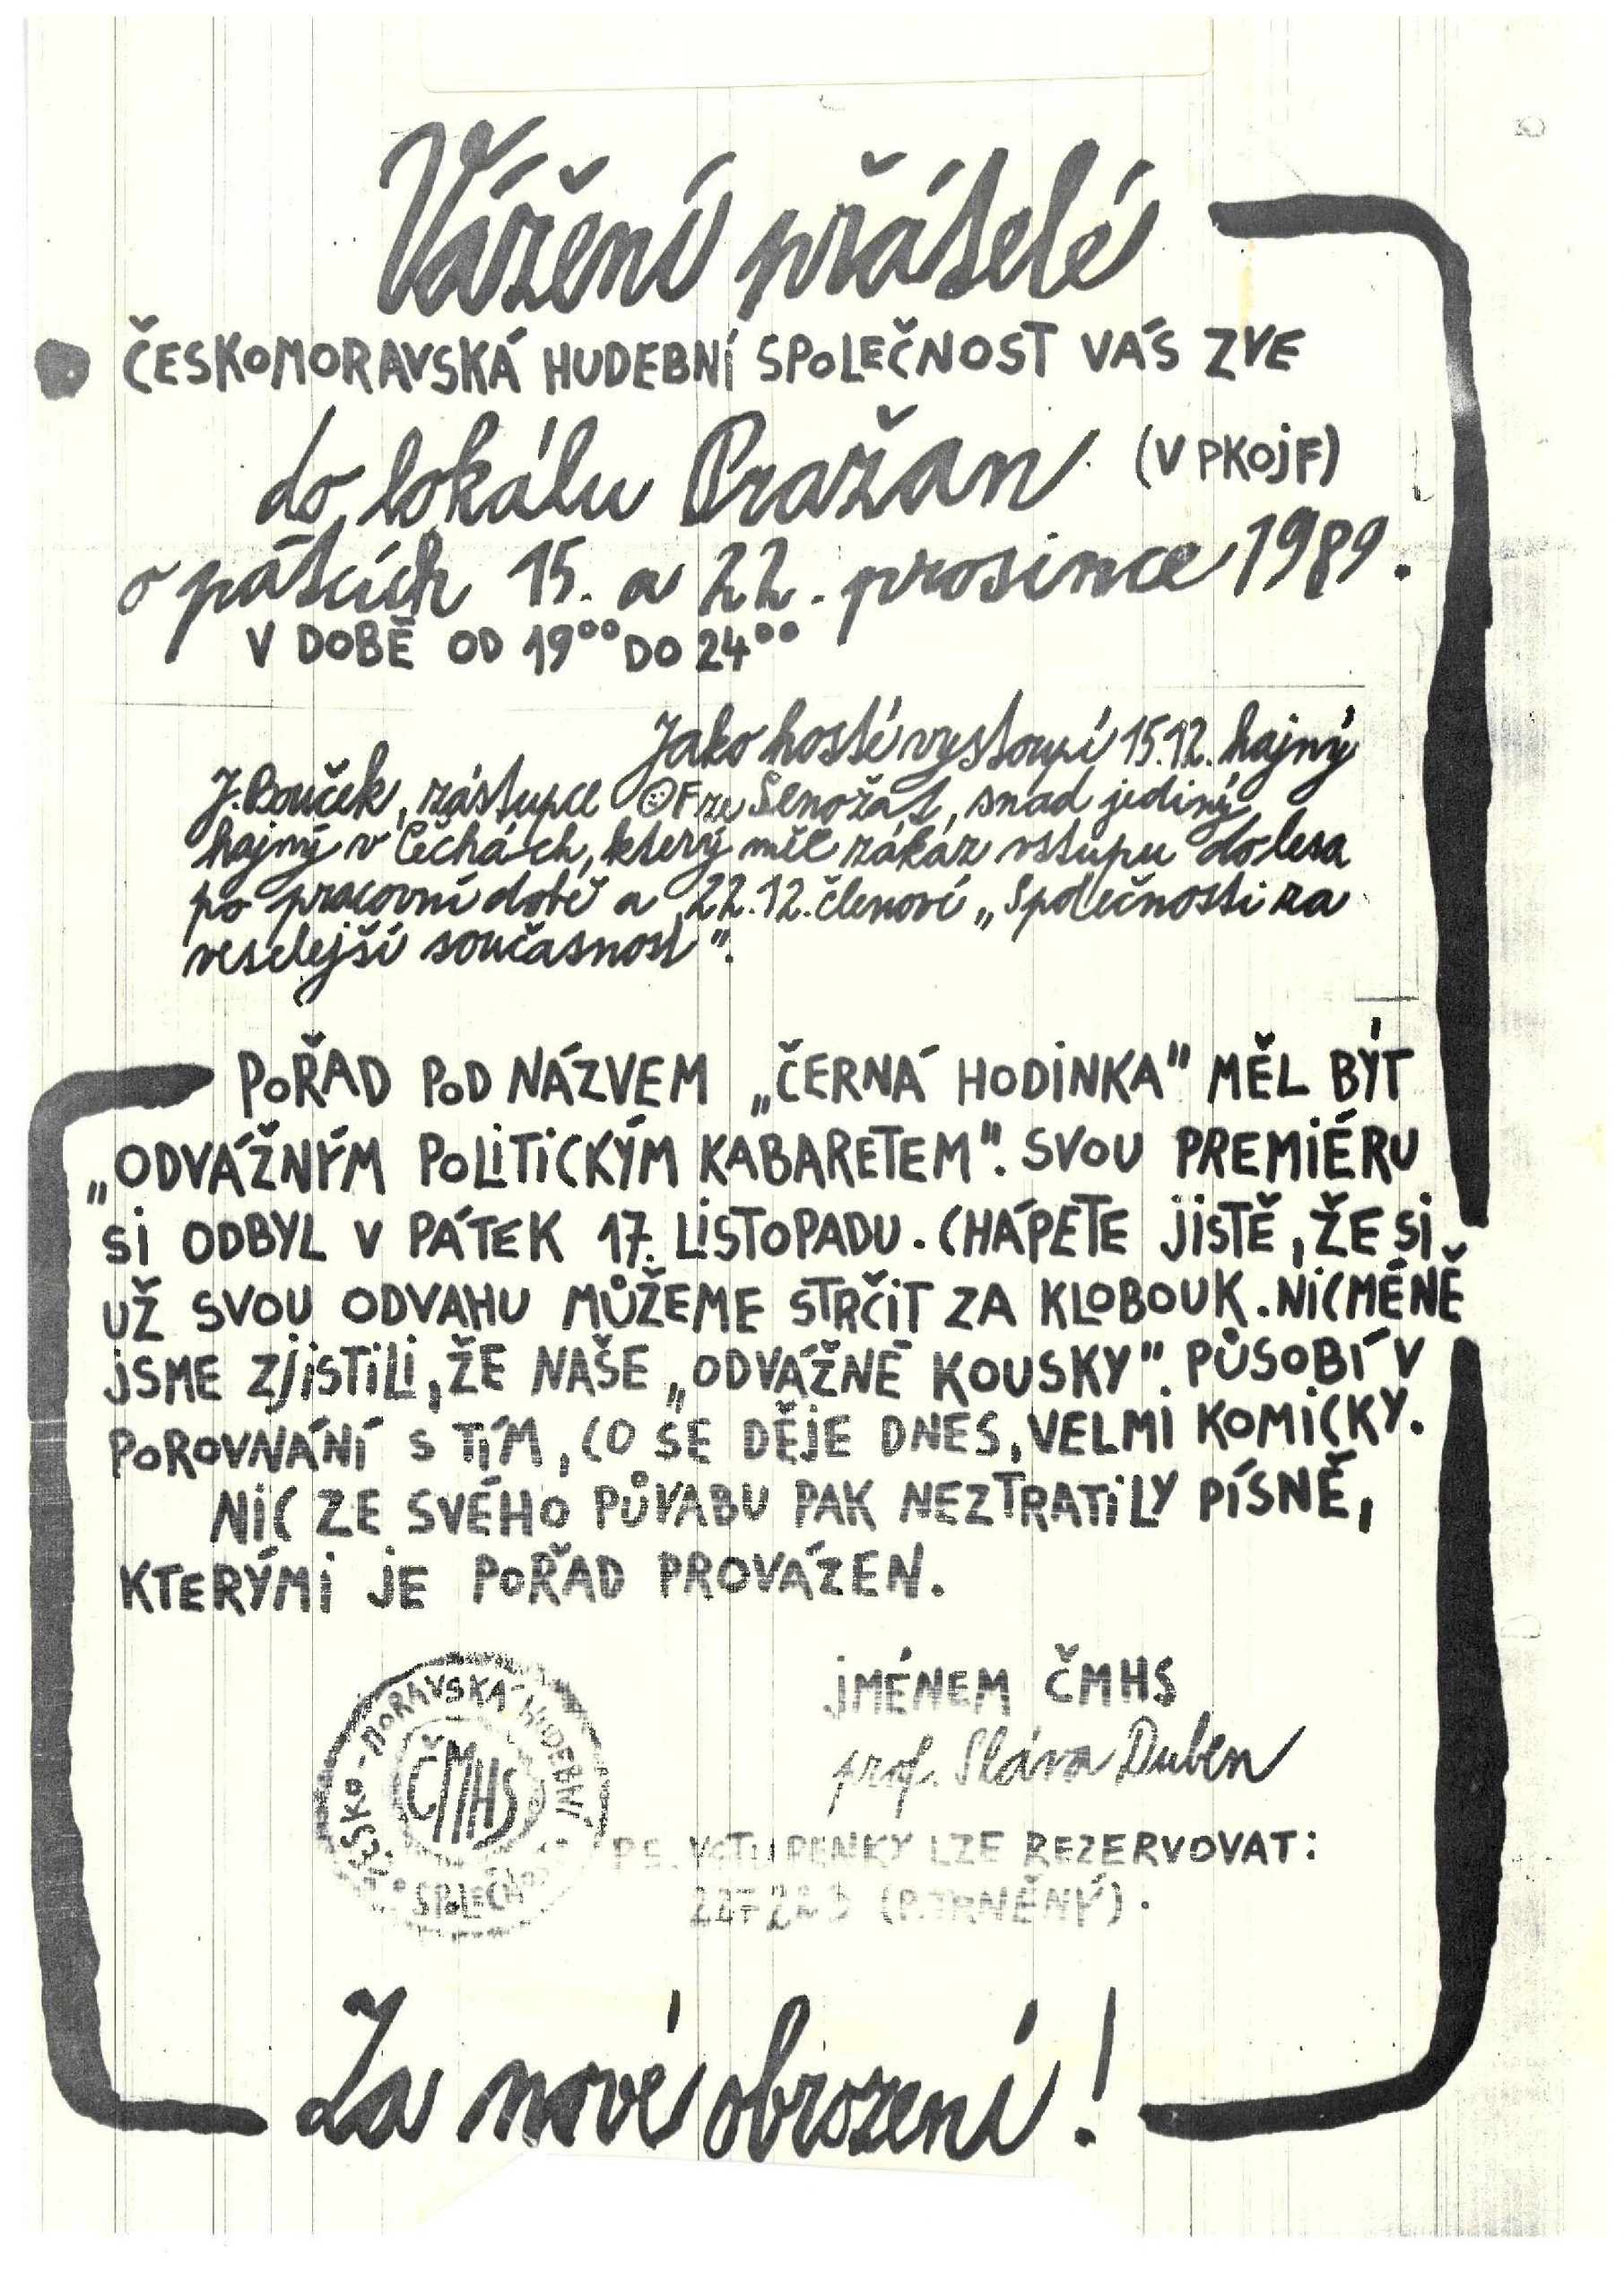 Vážení přátelé
ČESKOMORAVSKÁ HUDEBNÍ SPOLEČNOST VÁS ZVE
do lokálu Pražan (V PKOJF)
o pátcích 15. a 22. prosince 1989.
V DOBĚ OD 19⁰⁰ DO 24⁰⁰
Jako hosté vystoupí 15.12. hajný
J. Bouček, zástupce OF ze Senožat, snad jediný
hajný v Čechách, který měl zákaz vstupu do lesa
po pracovní době a 22.12. členové „Společnosti za
veselejší současnost".
POŘAD POD NÁZVEM „ČERNÁ HODINKA" MĚL BÝT
„ODVÁŽNÝM POLITICKÝM KABARETEM". SVOU PREMIÉRU
SI ODBYL V PÁTEK 17. LISTOPADU. CHÁPETE JISTĚ, ŽE SI
UŽ SVOU ODVAHU MŮŽEME STRČIT ZA KLOBOUK. NICMÉNĚ
JSME ZJISTILI, ŽE NAŠE „ODVÁŽNÉ KOUSKY" PŮSOBÍ V
POROVNÁNÍ S TÍM, CO SE DĚJE DNES, VELMI KOMICKY.
NIC ZE SVÉHO PŮVABU PAK NEZTRATILY PÍSNĚ,
KTERÝMI JE POŘAD PROVÁZEN.
JMÉNEM ČMHS
prof. Sláva Duben
ČESKO-MORAVSKÁ HUDEBNÍ
ČMHS
P.S. VSTUPENKY LZE REZERVOVAT:
(P. TRNĚNÝ).
Za nové obrození!